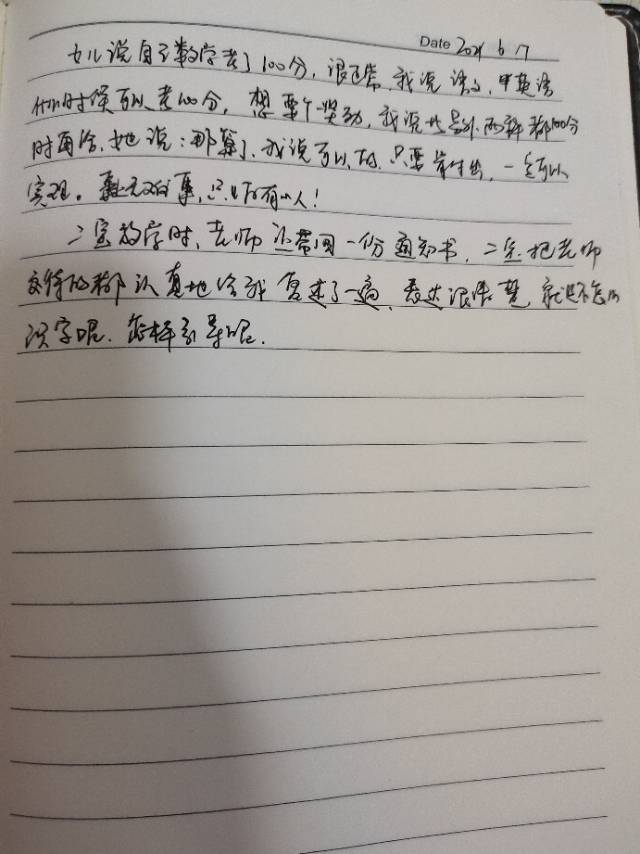 Date 2021 6 17
女儿说自己数学考了100分，很正常，我说语文，英语
什么时候可以考100分，想要个奖励，我说另外两科都100分
时再给，她说：那算了，我说可以的，只要肯付出，一定可以
实现。事，只怕有心人！
二宝放学时，老师还带回一份通知书，二宝把老师
交待的都认真地给我复述了一遍，表达很清楚，就是不怎么
识字呢，怎样引导呢。